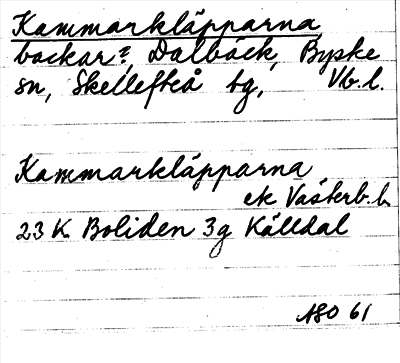 Kammarkläpparna
backar?, Dalbäck, Byske
sn, Skellefteå tg, Vb.l.
Kammarkläpparna
ek Västerb.l.
23 K Boliden 3g Källdal
ASO 61